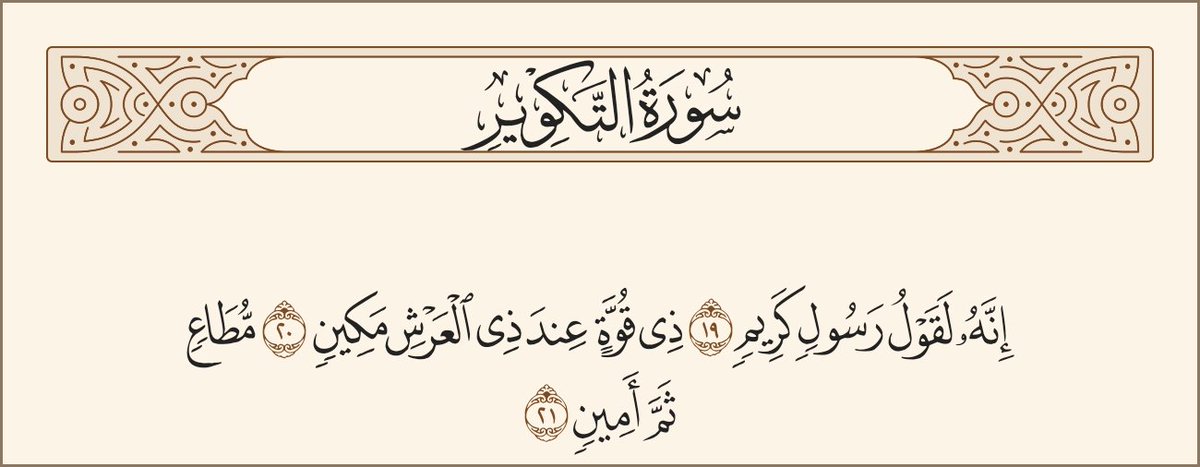 سُورَةُ التَّكْوِيرِ
إِنَّهُۥ لَقَوْلُ رَسُولٍ كَرِيمٍ ١٩ ذِى قُوَّةٍ عِندَ ذِى ٱلْعَرْشِ مَكِينٍ ٢٠ مُّطَاعٍ
ثَمَّ أَمِينٍ ٢١